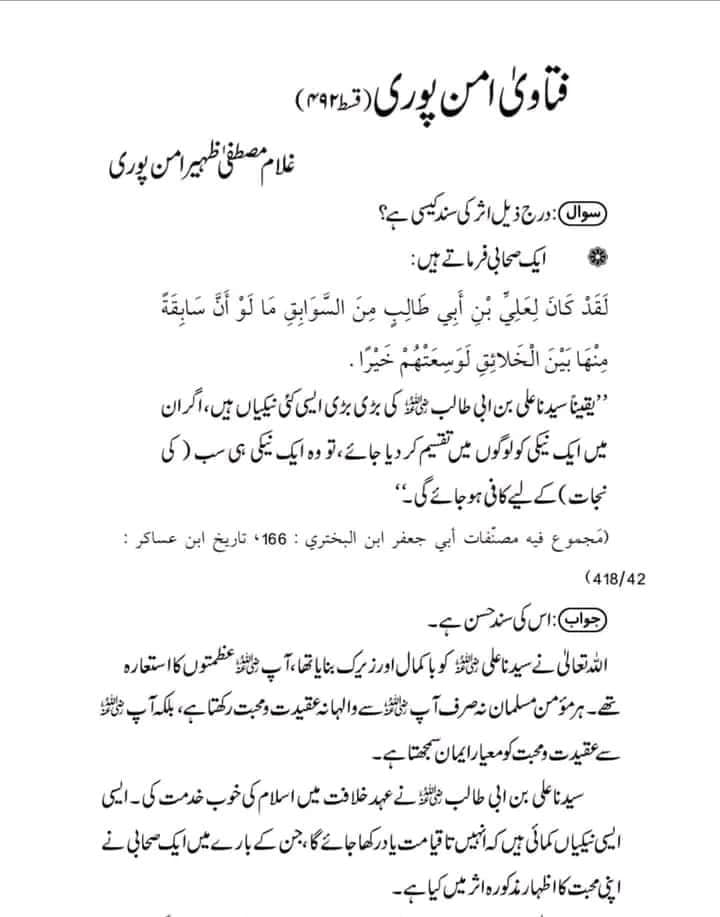 فتاویٰ امن پوری (قسط ۴۹۲)
غلام مصطفیٰ ظہیر امن پوری
سوال: درج ذیل اثر کی سند کیسی ہے؟
ایک صحابی فرماتے ہیں:
لَقَدْ كَانَ لِعَلِيِّ بْنِ أَبِي طَالِبٍ مِنَ السَّوَابِقِ مَا لَوْ أَنَّ سَابِقَةً
مِنْهَا بَيْنَ الْخَلَائِقِ لَوَسِعَتْهُمْ خَيْرًا .
’’یقیناً سیدنا علی بن ابی طالب رضی اللہ عنہ کی بڑی بڑی ایسی کئی نیکیاں ہیں، اگر ان
میں ایک نیکی کو لوگوں میں تقسیم کر دیا جائے، تو وہ ایک نیکی ہی سب (کی
نجات) کے لیے کافی ہو جائے گی۔‘‘
(مَجموع فيه مصنّفات أبي جعفر ابن البختري : 166، تاريخ ابن عساكر :
418/42)
جواب: اس کی سند حسن ہے۔
اللہ تعالیٰ نے سیدنا علی رضی اللہ عنہ کو باکمال اور زیرک بنایا تھا، آپ رضی اللہ عنہ عظمتوں کا استعارہ
تھے۔ ہر مؤمن مسلمان نہ صرف آپ رضی اللہ عنہ سے والہانہ عقیدت ومحبت رکھتا ہے، بلکہ آپ رضی اللہ عنہ
سے عقیدت ومحبت کو معیار ایمان سمجھتا ہے۔
سیدنا علی بن ابی طالب رضی اللہ عنہ نے عہد خلافت میں اسلام کی خوب خدمت کی۔ ایسی
ایسی نیکیاں کمائی ہیں کہ انہیں تا قیامت یاد رکھا جائے گا، جن کے بارے میں ایک صحابی نے
اپنی محبت کا اظہار مذکورہ اثر میں کیا ہے۔